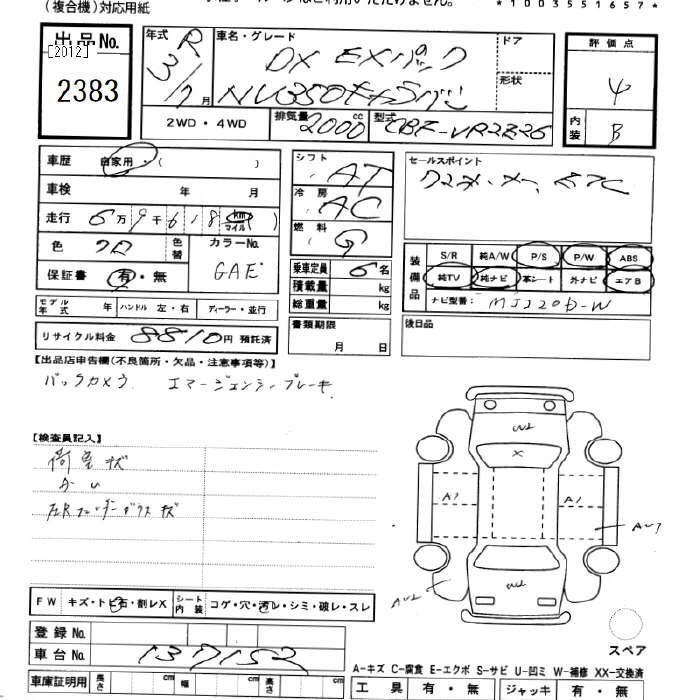 (複合機)対応用紙
*1003551657*
出品No.
[2012]
2383
年式 R 3/7月
車名・グレード DX EXパック
NV350キャラバン
ドア
形状
評価点
4
内装 B
2WD・4WD
排気量 2000cc
型式 CBF-VR2E26
車歴 自家用・( )
車検 年 月
走行 6万9千618(km マイル)
色 クロ 色替
カラーNo. GAE
保証書 有・無
モデル年式 年 ハンドル 左・右 ディーラー・並行
リサイクル料金 8810円 預託済
シフト AT
冷房 AC
燃料 G
乗車定員 6名
積載量 kg
総重量 kg
書類期限
月 日
セールスポイント
装備品
S/R 純A/W P/S P/W ABS
純TV 純ナビ 革シート 外ナビ エアB
ナビ型番: MJ320D-W
後日品
【出品店申告欄(不良箇所・欠品・注意事項等)】
バックカメラ エマージェンシーブレーキ
【検査員記入】
荷室キズ
FW キズ・トビ石・割レX シート内装 コゲ・穴・汚レ・シミ・破レ・スレ
登録No.
車台No. 137152
車庫証明用 長さ 幅 高さ
X
A1
A1
スペア
A-キズ C-腐食 E-エクボ S-サビ U-凹ミ W-補修 XX-交換済
工具 有・無 ジャッキ 有・無